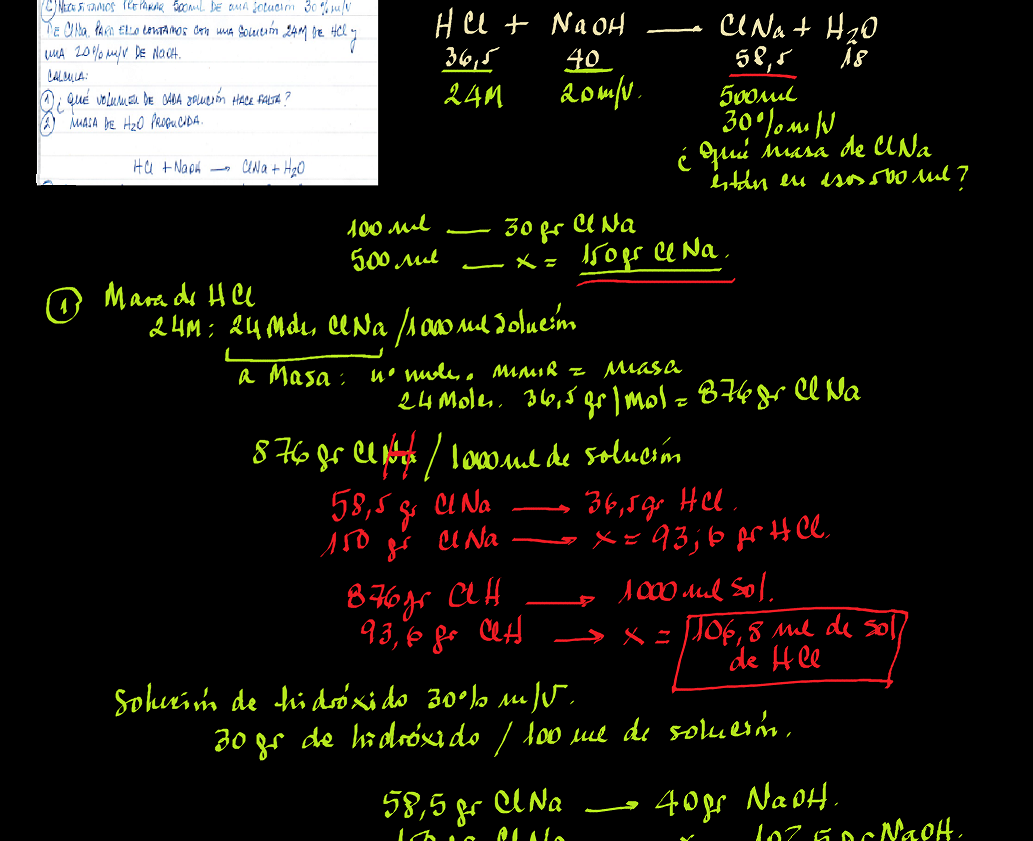 C) NECESITAMOS PREPARAR 500ml DE UNA SOLUCIÓN 30% m/V
DE ClNa. PARA ELLO CONTAMOS CON UNA SOLUCIÓN 24M DE HCl y
UNA 20% m/V DE NaOH.
CALCULA:
① ¿QUÉ VOLUMEN DE CADA SOLUCIÓN HACE FALTA?
② MASA DE H₂O PRODUCIDA.
HCl + NaOH → ClNa + H₂O
HCl + NaOH — ClNa + H₂O
36,5 40 58,5 18
24M 20 m/V. 500ml
30% m/V
¿Qué masa de ClNa
están en esos 500 ml?
100 ml — 30 gr ClNa
500 ml — x = 150 gr ClNa.
① Masa de HCl
24M: 24 Moles ClNa / 1000 ml solución
a Masa: nº moles . mmR = masa
24 Moles. 36,5 gr/mol = 876 gr ClNa
876 gr ClH / 1000 ml de solución
58,5 gr ClNa → 36,5 gr HCl.
150 gr ClNa → x = 93,6 gr HCl.
876 gr ClH → 1000 ml sol.
93,6 gr ClH → x = 106,8 ml de sol
de HCl
Solución de hidróxido 30% m/V.
30 gr de hidróxido / 100 ml de solución.
58,5 gr ClNa → 40 gr NaOH.
150 gr ClNa x 102,5 gr NaOH.